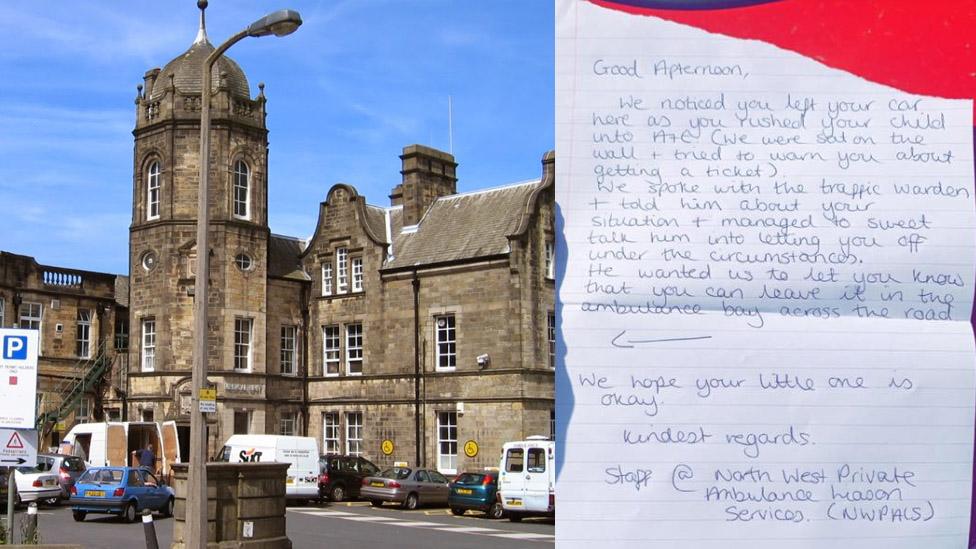 P
Sixt
Good Afternoon,
We noticed you left your car
here as you rushed your child
into A+E (we were sat on the
wall + tried to warn you about
getting a ticket).
We spoke with the traffic warden
+ told him about your
situation + managed to sweet
talk him into letting you off
under the circumstances.
He wanted us to let you know
that you can leave it in the
ambulance bay across the road
We hope your little one is
okay.
Kindest regards.
Staff @ North West Private
Ambulance Liason
Services. (NWPALS)